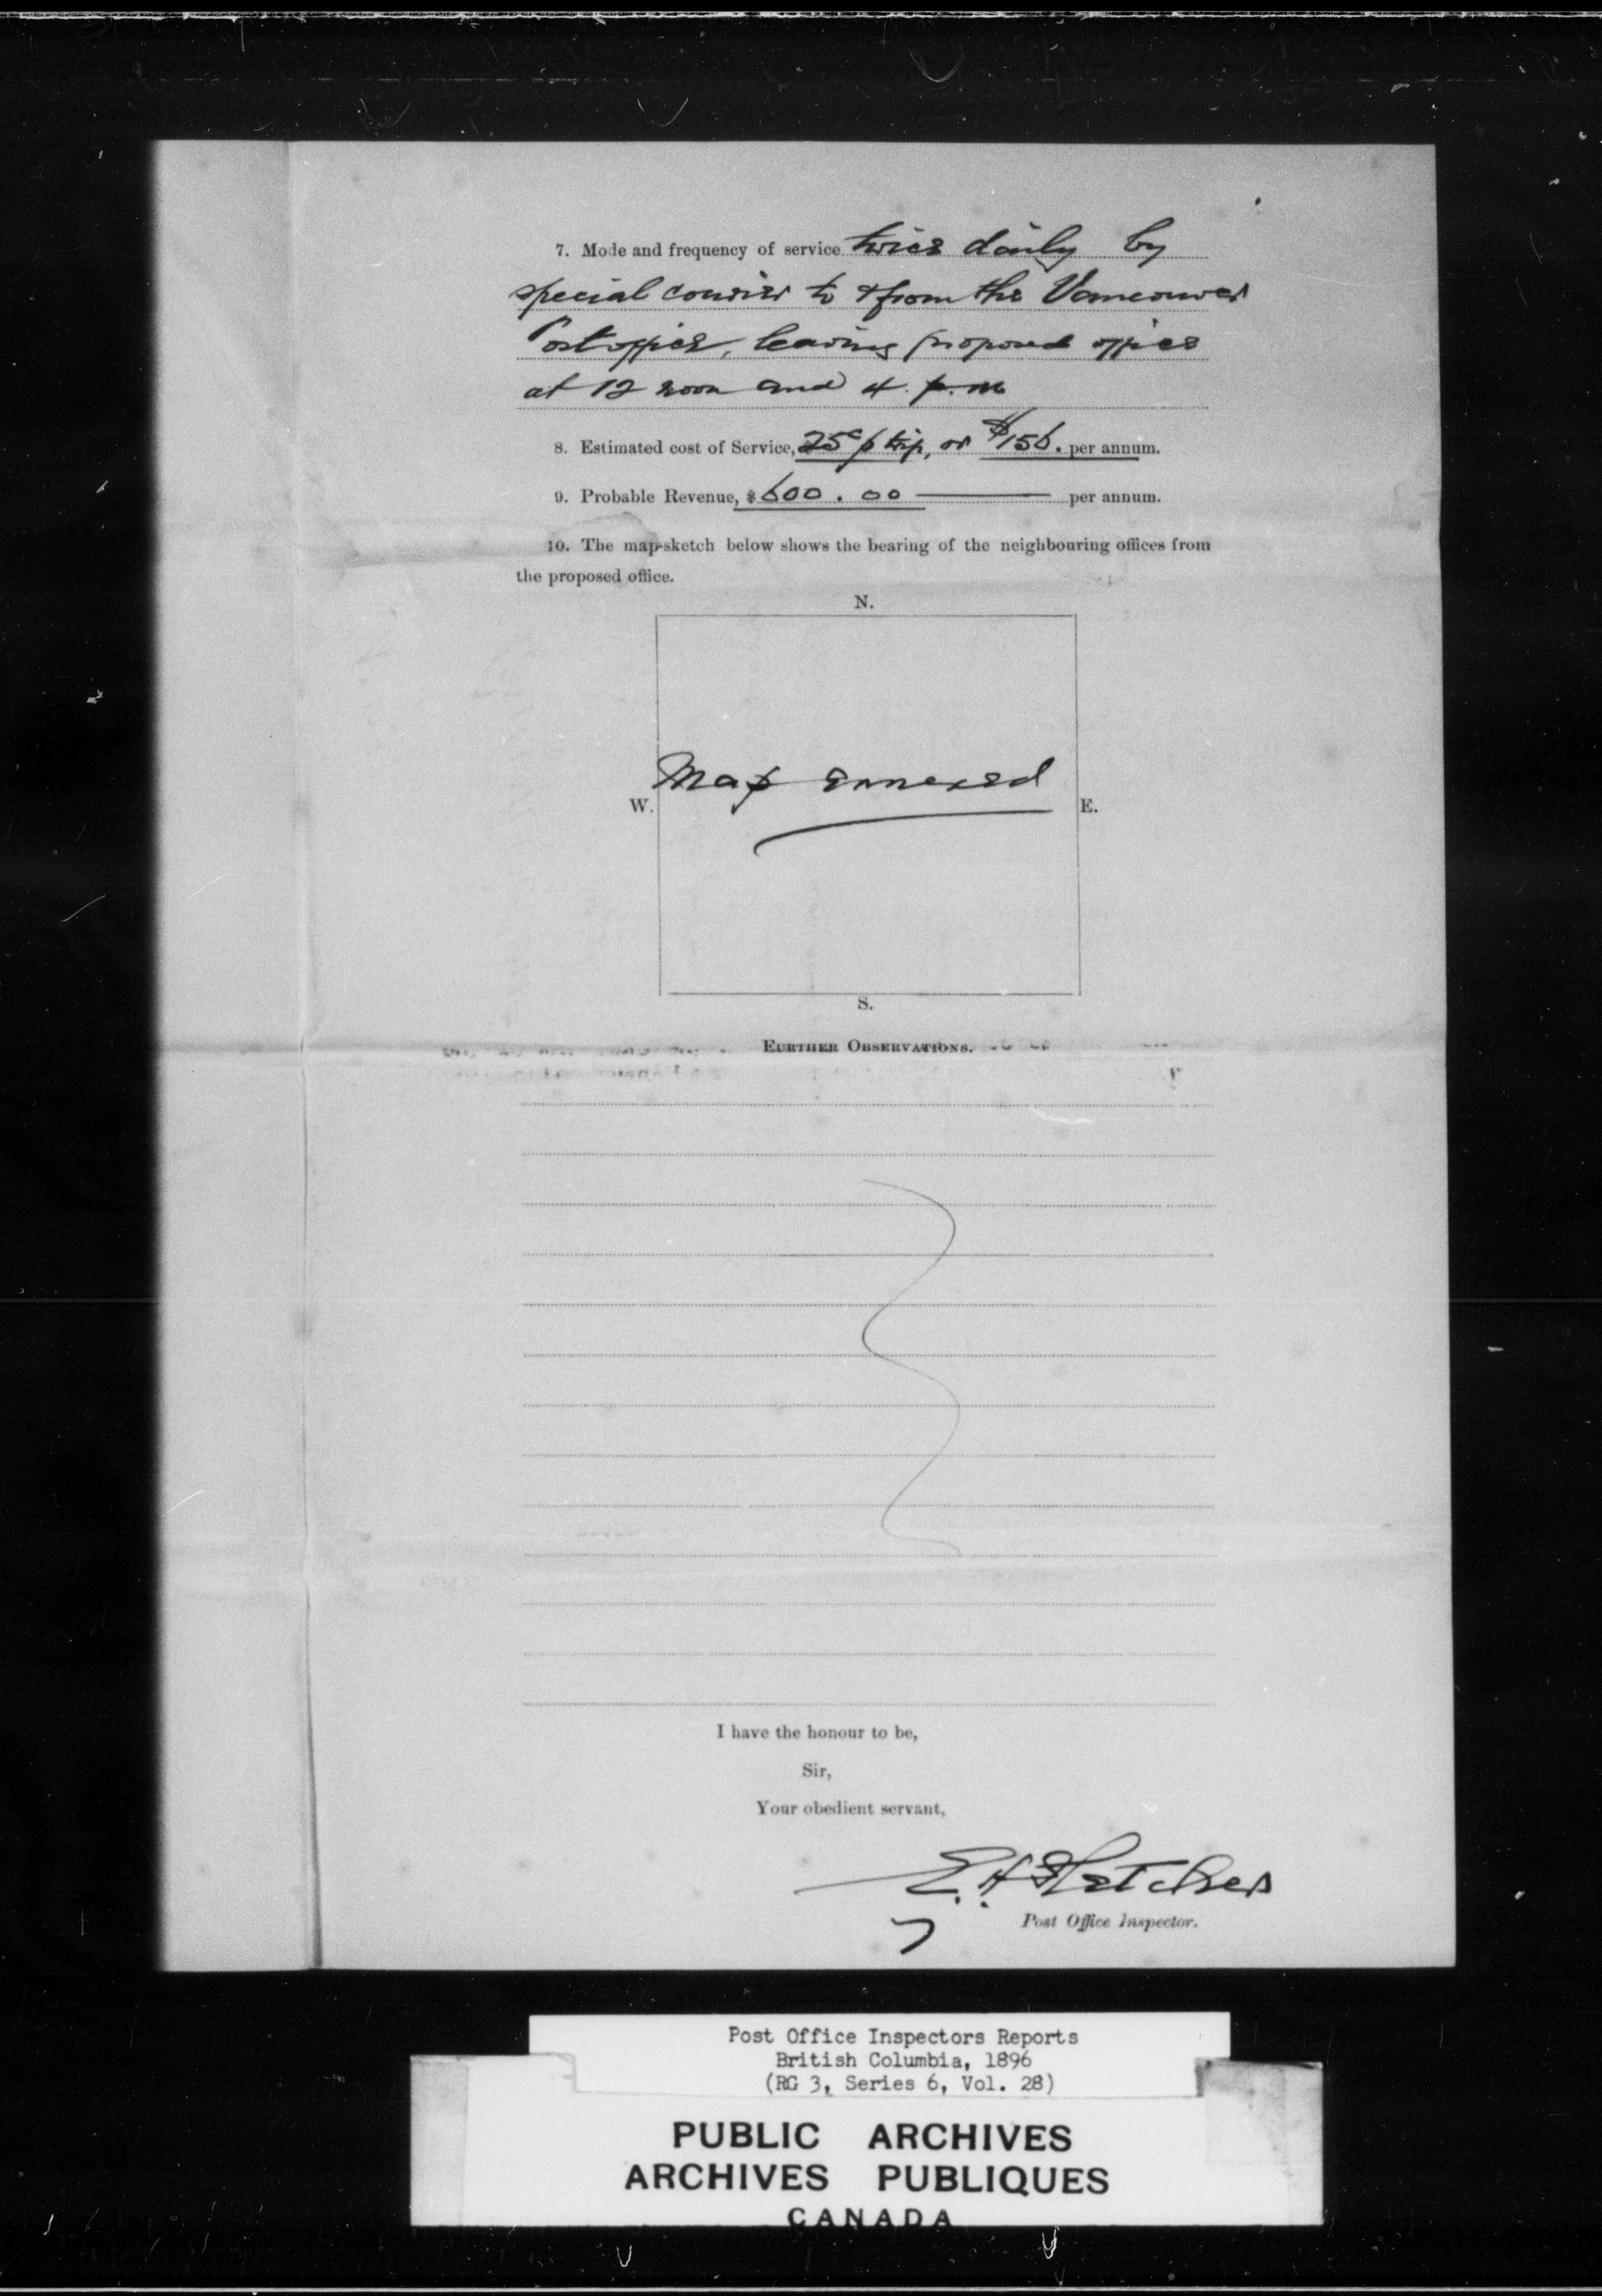 7. Mode and frequency of service twice daily by
special courier to & from the Vancouver
Post office, leaving proposed office
at 12 noon and 4. p.m
8. Estimated cost of Service, 25c p trip, or $156. per annum.
9. Probable Revenue, $600.00 per annum.
10. The map-sketch below shows the bearing of the neighbouring offices from
the proposed office.
N.
Map annexed
W.
E.
S.
FURTHER OBSERVATIONS.
I have the honour to be,
Sir,
Your obedient servant,
E. H Fletcher
Post Office Inspector.
Post Office Inspectors Reports
British Columbia, 1896
(RG 3, Series 6, Vol. 28)
PUBLIC ARCHIVES
ARCHIVES PUBLIQUES
CANADA